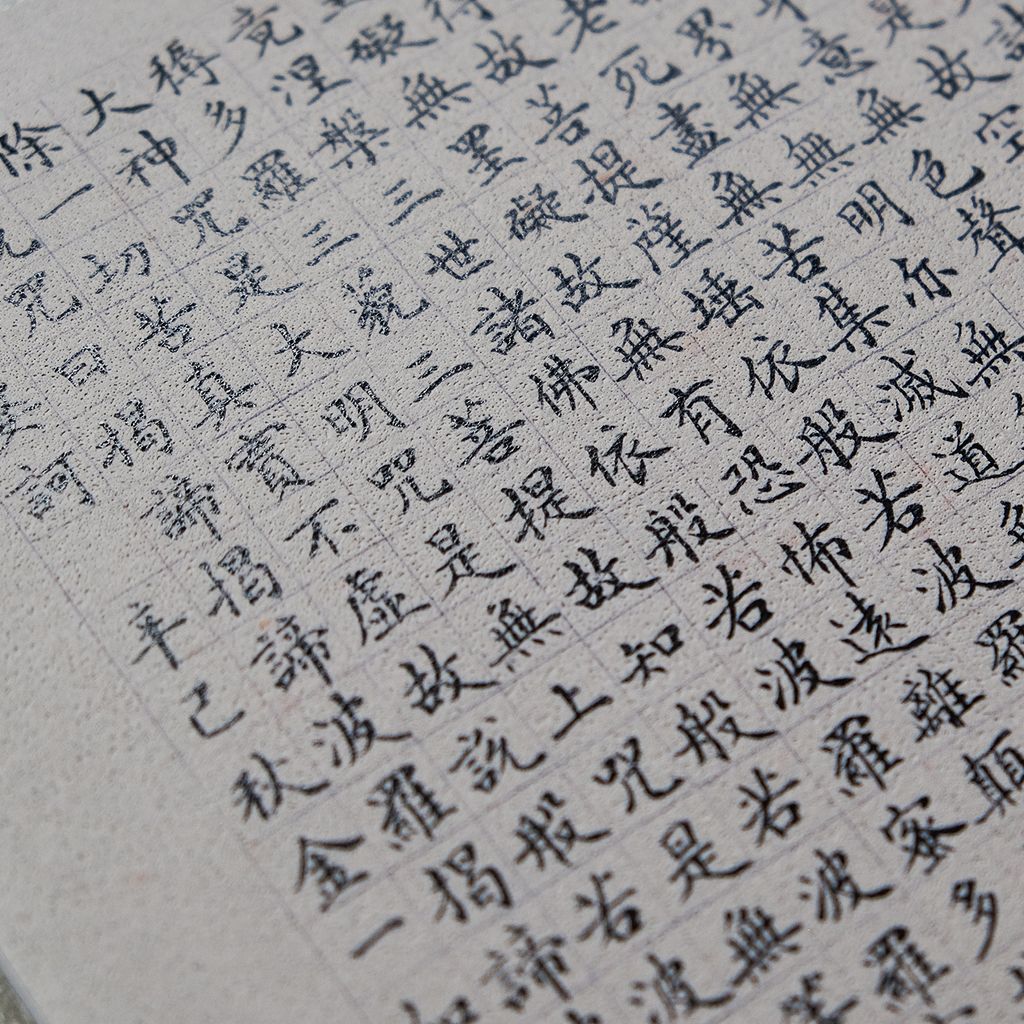 是故空
意無色聲
界無無明亦無
老死盡無苦集滅道
故菩提薩埵依般若波羅
礙無罣礙故無有恐怖遠離顛
竟涅槃三世諸佛依般若波羅蜜多
耨多羅三藐三菩提故知般若波羅
大神咒是大明咒是無上咒是無
除一切苦真實不虛故説般若波
咒曰揭諦揭諦波羅揭諦
訶 辛己秋金一